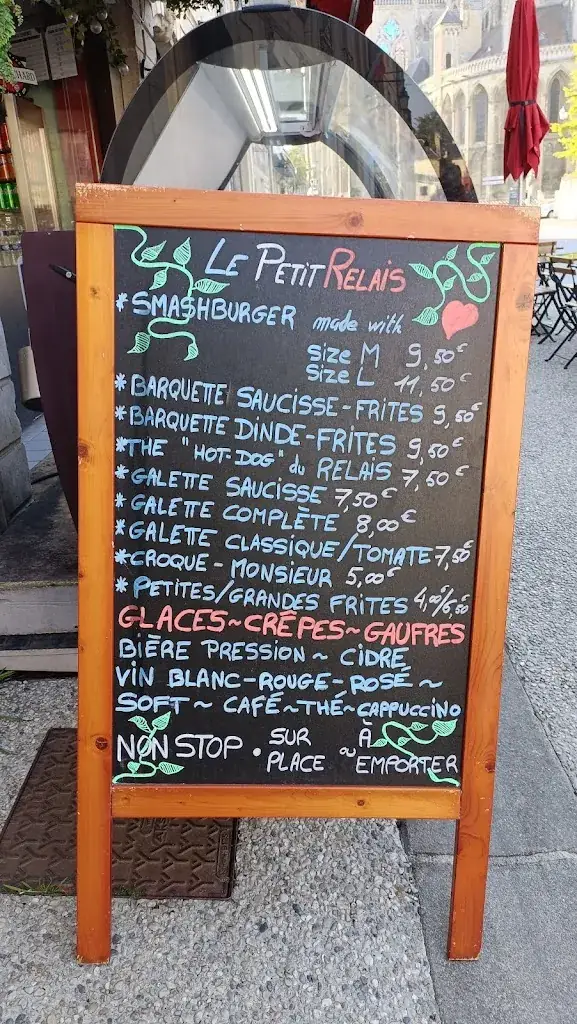 LE PETIT RELAIS
* SMASHBURGER made with
SIZE M 9,50€
SIZE L 11,50€
* BARQUETTE SAUCISSE-FRITES 9,50€
* BARQUETTE DINDE-FRITES 9,50€
* THE "HOT-DOG" du RELAIS 7,50€
* GALETTE SAUCISSE 7,50€
* GALETTE COMPLÈTE 8,00€
* GALETTE CLASSIQUE/TOMATE 7,50€
* CROQUE-MONSIEUR 5,00€
* PETITES/GRANDES FRITES 4,00/6,50€
GLACES~CRÊPES~GAUFRES
BIÈRE PRESSION ~ CIDRE
VIN BLANC-ROUGE-ROSÉ ~
SOFT ~ CAFÉ~THÉ~CAPPUCCINO
NON STOP · SUR PLACE ~ À EMPORTER